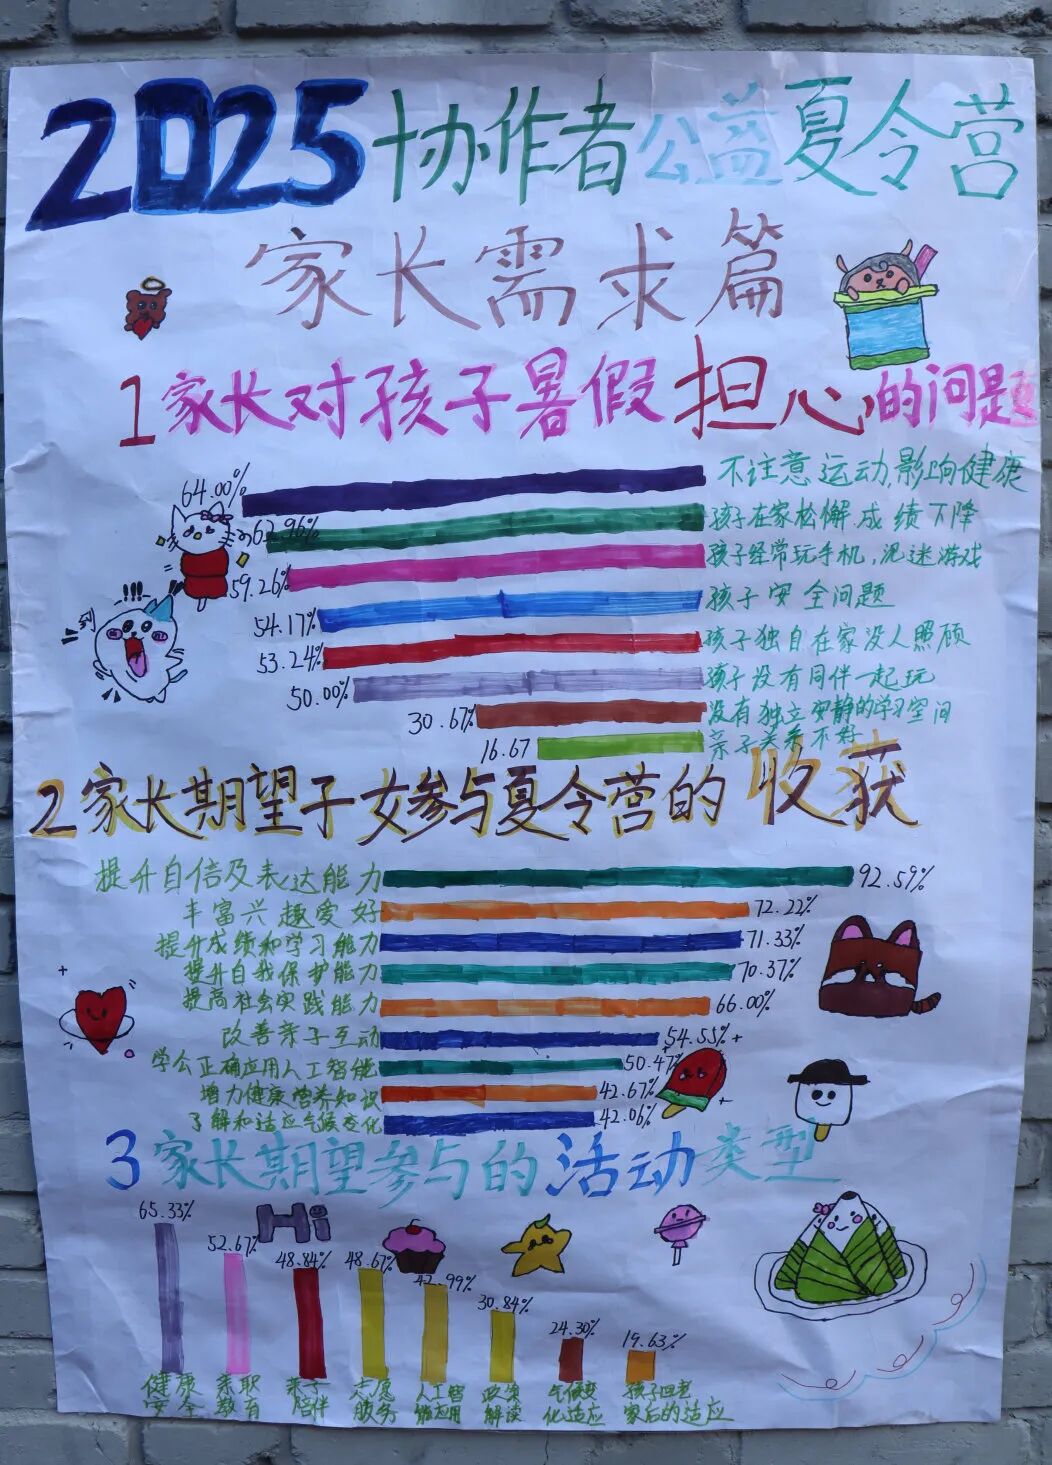 2025协作者公益夏令营
家长需求篇
1家长对孩子暑假担心的问题
64.00% 不注意运动,影响健康
62.96% 孩子在家松懈成绩下降
59.26% 孩子经常玩手机,沉迷游戏
54.17% 孩子安全问题
53.24% 孩子独自在家没人照顾
50.00% 孩子没有同伴一起玩
30.67% 没有独立安静的学习空间
16.67 亲子关系不好
2家长期望子女参与夏令营的收获
提升自信及表达能力 92.59%
丰富兴趣爱好 72.22%
提升成绩和学习能力 71.33%
提升自我保护能力 70.37%
提高社会实践能力 66.00%
改善亲子互动 54.55%
学会正确应用人工智能 50.47%
增力健康营养知识 42.67%
了解和适应气候变化 42.06%
3家长期望参与的活动类型
Hi
65.33% 52.67% 48.84% 48.67% 42.99% 30.84% 24.30% 19.63%
健康 亲职 亲子 志愿 人工智 政策 气候变 孩子回老
安全 教育 陪伴 服务 能应用 解读 化适应 家后的适应